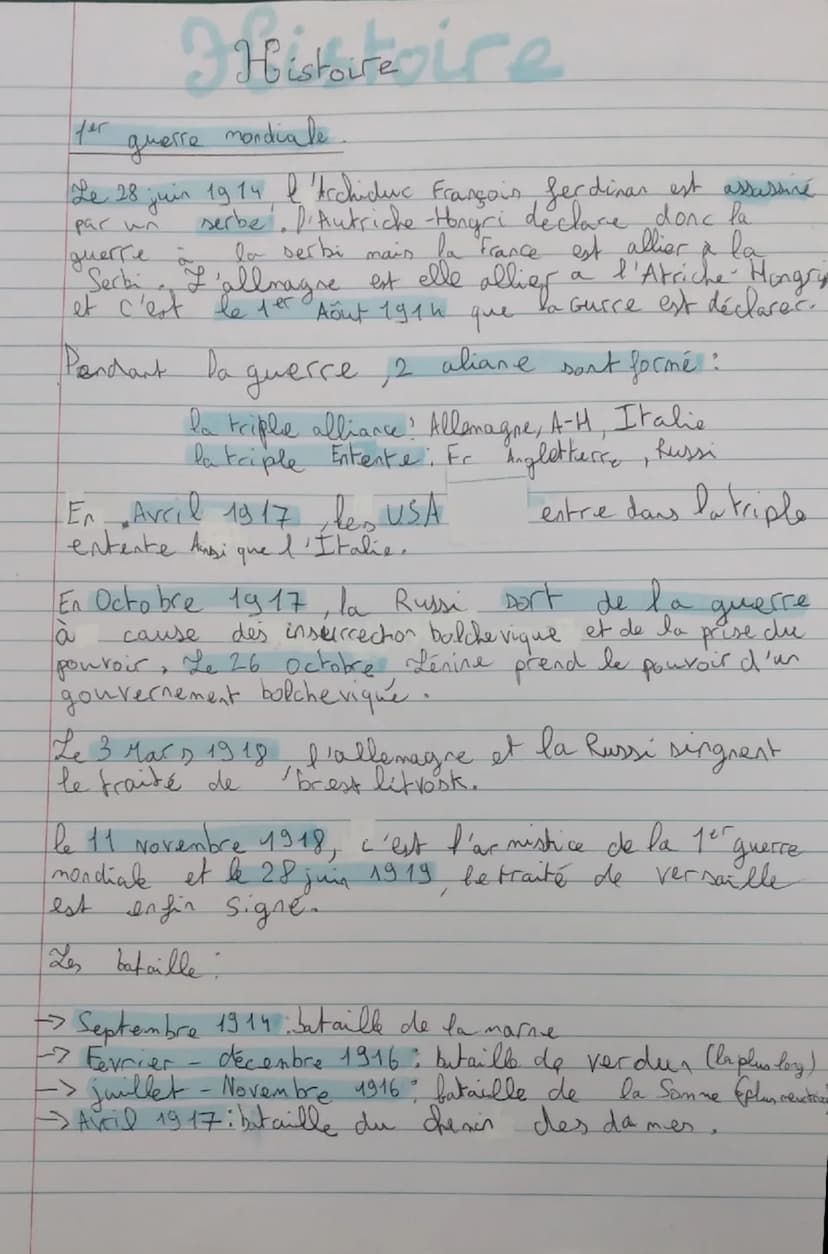 Histoire
Histoire
1er guerre mondiale.
Le 28 juin 1914, l'Archiduc François ferdinan est assassiné
par un serbe. l'Autriche-Hongri déclare donc la
guerre à la serbi mais la France est allier à la
Serbi. L'allmagne est elle allier a l'Atriche-Hongry
et c'est le 1er Août 1914 que la Gurre est déclarer.
Pendant la guerre, 2 aliane sont formé :
la triple alliance : Allemagne, A-H, Italie
la triple Entente : Fr Angletterre, Russi
En Avril 1917, les USA entre dans la triple
entente Ainsi que l'Italie.
En Octobre 1917, la Russi sort de la guerre
à cause des insurrection bolchevique et de la prise du
pouvoir, Le 26 octobre, Lénine prend le pouvoir d'un
gouvernement bolchevique.
Le 3 Mars 1918, l'allemagne et la Russi singnent
le traité de brest litvosk.
le 11 Novembre 1918, c'est l'armistice de la 1er guerre
mondiale et le 28 juin 1919, le traité de versaille
est enfin signé.
Les bataille :
-> Septembre 1914 : bataille de la marne
-> Février - décembre 1916 : bataille de verdun (la plus long)
-> juillet - Novembre 1916 : bataille de la Somme (plus
-> Avril 1917 : bataille du chemin des dames.